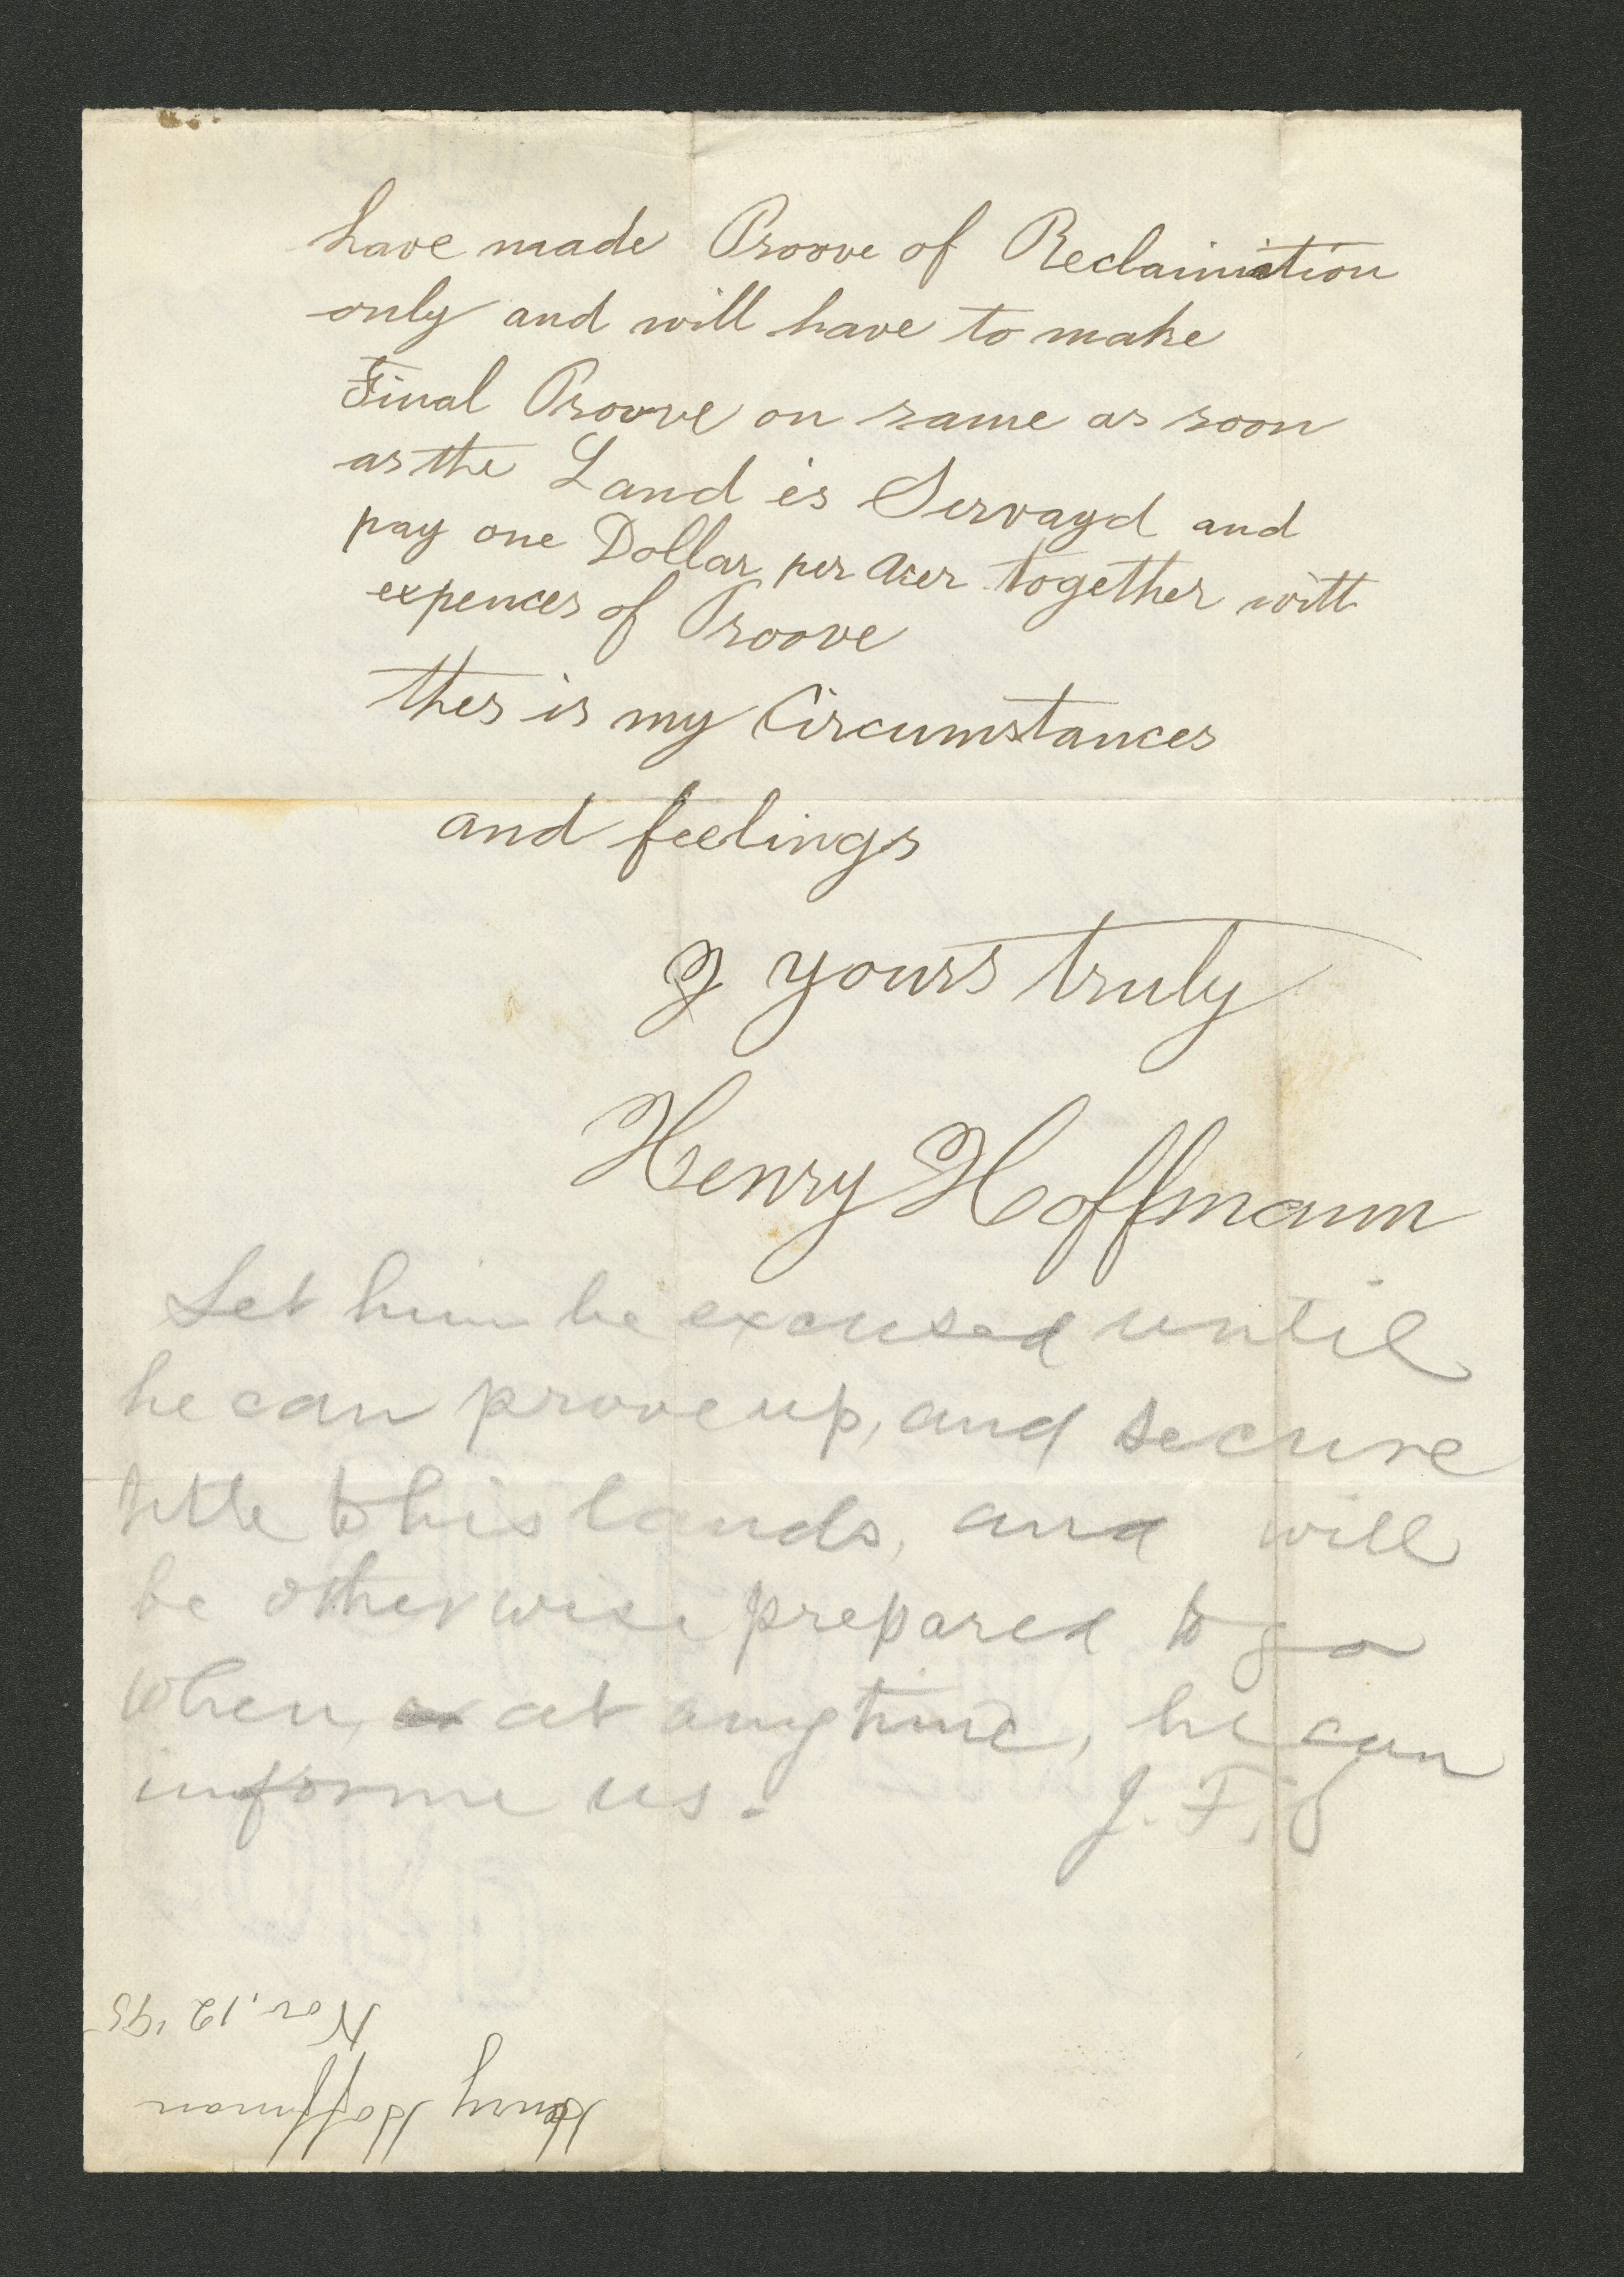 have made Proove of Reclaimation
only and will have to make
Final Proove on same as soon
as the Land is Servayd and
pay one Dollar per Acer together witt
expences of Proove
thes is my Circumstances
and feelings
I yours truly
Henry Hoffmann
Let him be excused until
he can prove up, and secure
title to his lands, and will
be otherwise prepared to go
when, at any time, he can
informe us. J. F. S
Henry Hoffman
Nov. 12 '95